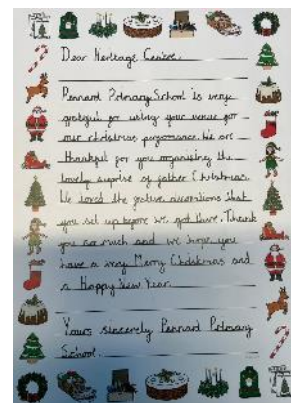 Dear Heritage Centre,
Pennard Primary School is very
grateful for using your venue for
our christmas performance. We are
thankful for you organising the
lovely suprise of father Christmas.
We loved the festive decorations that
you set up before we got there. Thank
you so much and we hope you
have a very Merry Christmas and
a Happy New Year.
Yours sincerely Pennard Primary
School.